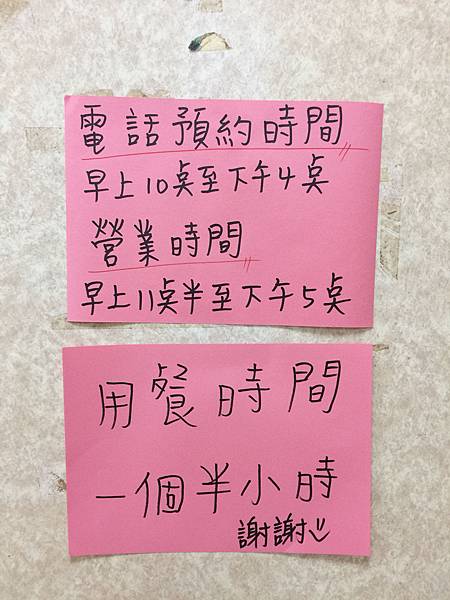 電話預約時間
早上10點至下午4點
營業時間
早上11點半至下午5點
用餐時間
一個半小時
謝謝